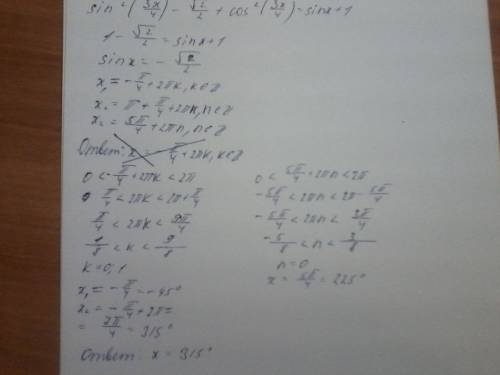 sin²(5x/4) - √2/2 + cos²(5x/4) = sinx+1
1 - √2/2 = sinx+1
sinx = - √2/2
x₁ = -π/4 + 2πk, k∈z
x₂ = π + π/4 + 2πn, n∈z
x₂ = 5π/4 + 2πn, n∈z
Ответ: x = -π/4 + 2πk, k∈z
0 < -π/4 + 2πk < 2π
π/4 < 2πk < 2π + π/4
π/4 < 2πk < 9π/4
1/8 < k < 9/8
k = 0, 1
x₁ = -π/4 = -45°
x₂ = -π/4 + 2π =
= 7π/4 = 315°
Ответ: x = 315°
0 < 5π/4 + 2πn < 2π
-5π/4 < 2πn < 2π - 5π/4
-5π/4 < 2πn < 3π/4
-5/8 < n < 3/8
n = 0
x = 5π/4 = 225°